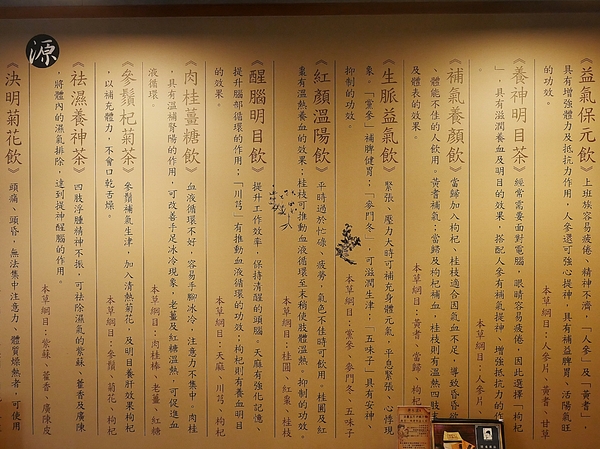 《益氣保元飲》上班族容易疲倦、精神不濟，「人參」及「黃耆」，
具有增強體力及抵抗力作用，人參還可強心提神，具有補益脾胃、活陽氣旺
的功效。
本草綱目：人參片、黃耆、甘草
《養神明目茶》經常需要面對電腦，眼睛容易疲倦，因此選擇「枸杞
」，具有滋潤養血及明目的效果，搭配人參有補氣提神、增強抵抗力的作
。
本草綱目：人參片、
《補氣養顏飲》當歸加入枸杞、桂枝適合因氣血不足，導致昏昏欲
、體能不佳的人飲用。黃耆補氣；當歸及枸杞補血，桂枝則有溫熱四肢
及體表的效果。
本草綱目：黃耆、當歸、枸杞
《生脈益氣飲》緊張、壓力大時可補充身體元氣，平息緊張、心悸現
象。「黨參」補脾健胃；「麥門冬」，可滋潤生津，「五味子」具有安神、
抑制的功效。
本草綱目：黨參、麥門冬、五味子
《紅顏溫陽飲》平時過於忙碌、疲勞、氣色不佳時可飲用。桂圓及紅
棗有溫熱養血的效果；桂枝可推動血液循環至末稍使肢體溫熱、抑制的功效。
本草綱目：桂圓、紅棗、桂枝
《醒腦明目飲》提升工作效率，保持清醒的頭腦。天麻有強化記憶、
提升腦部循環的作用；「川芎」有推動血液循環的功效；枸杞則有養血明目
的效果。
本草綱目：天麻、川芎、枸杞
《肉桂薑糖飲》血液循環不好，容易手腳冰冷，注意力不集中，肉桂
，具有溫補腎陽的作用，可改善手足冰冷現象，老薑及紅糖溫熱，可促進血
液循環
本草綱目：肉桂棒、老薑、紅糖
《參鬚杞菊茶》參鬚補氣生津，加入清熱菊花，及明目養肝效果枸杞
，以補充體力，不會口乾舌燥。
本草綱目：參鬚、菊花、枸杞
《祛濕養神茶》四肢浮腫精神不振，可祛除濕氣的紫蘇、藿香及廣陳
，將體內的濕氣排除，達到提神醒腦的作用。
本草綱目：紫蘇、藿香、廣陳皮
源
《決明菊花飲》頭痛、頭昏，無法集中注意力，體質燥熱者，可使用